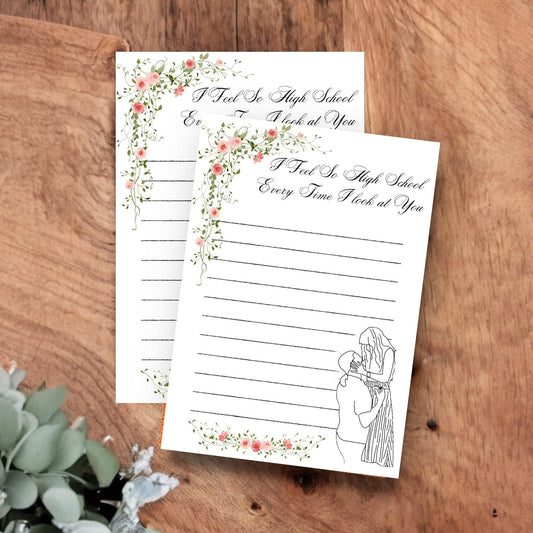 I Feel So High School
Every Time I look at You
I Feel So High School
Every Time I look at You